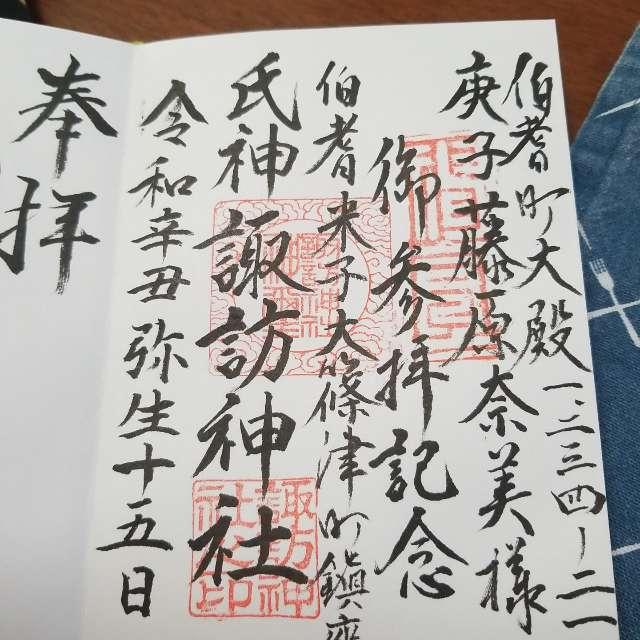 伯耆町大殿一二三四ー二一
庚子藤原奈美様
御参拝記念
伯耆米子大篠津町鎮座
氏神諏訪神社
令和辛丑弥生十五日
奉拝
諏訪神
社之印